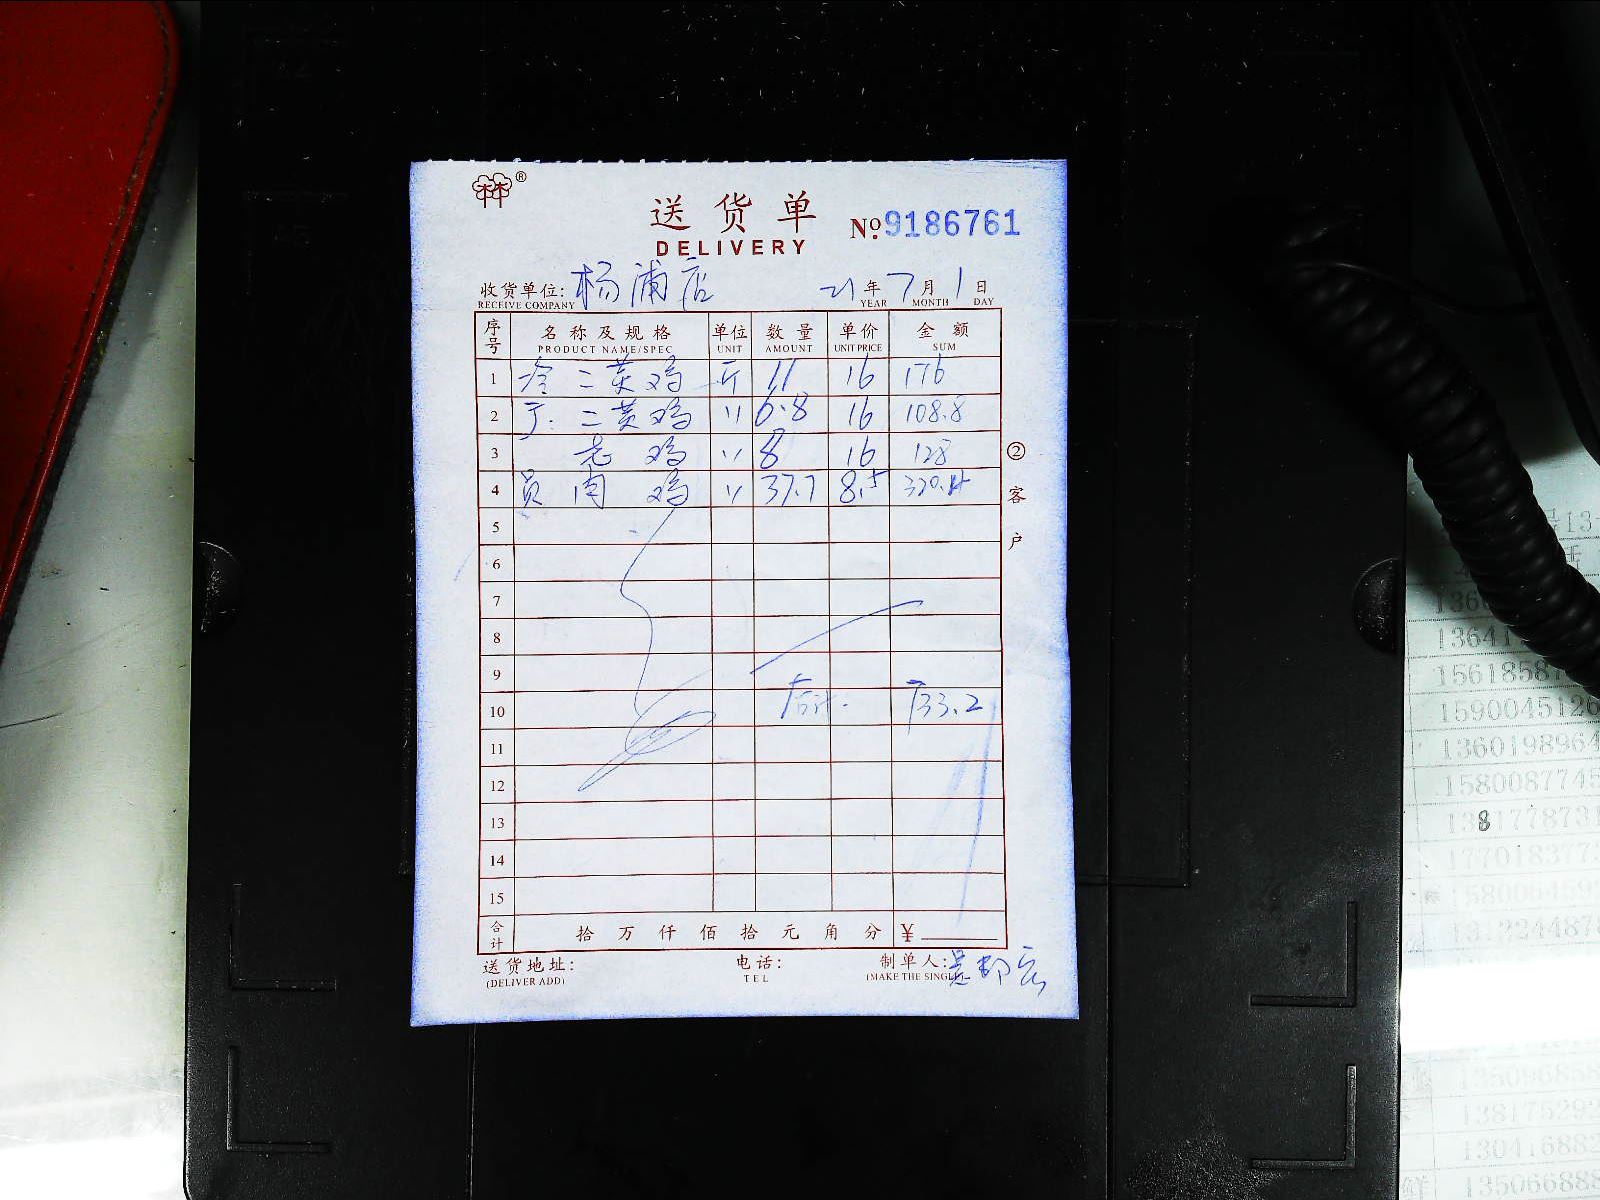 林®
送货单
DELIVERY
№9186761
收货单位: 杨浦店 21年7月1日
RECEIVE COMPANY YEAR MONTH DAY
序号 名称及规格 单位 数量 单价 金额
PRODUCT NAME/SPEC UNIT AMOUNT UNIT PRICE SUM
1 冷 三黄鸡 斤 11 16 176
2 于. 三黄鸡 〃 6.8 16 108.8
3 老鸡 〃 8 16 128
4 员 肉鸡 〃 37.7 8.5 320.4
5
6
7
8
9
10 合计. 733.2
11
12
13
14
15
合计 拾 万 仟 佰 拾 元 角 分 ¥
送货地址: 电话: 制单人:
(DELIVER ADD) TEL (MAKE THE SINGLE
②客户
1590045126
1360198964
1580087745